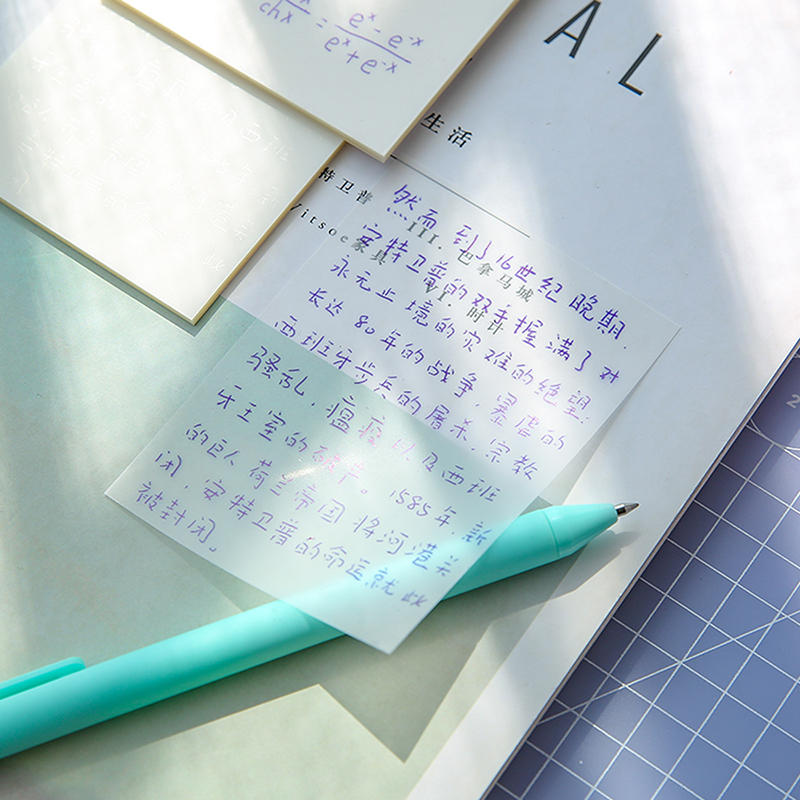 chx = e^x - e^-x / e^x + e^-x
AL
生活
特卫普
Vitsoe家具
III. 也拿马城
VI. 附计
然而到了16世纪晚期,
安特卫普的双手握满了对
永无止境的灾难的绝望:
长达80年的战争,暴虐的
西班牙步兵的屠杀,宗教
骚乱,瘟疫以及西班
牙王室的破产。1585年,新
的巨人荷兰帝国将河港关
闭,安特卫普的命运就此
被封闭。
2